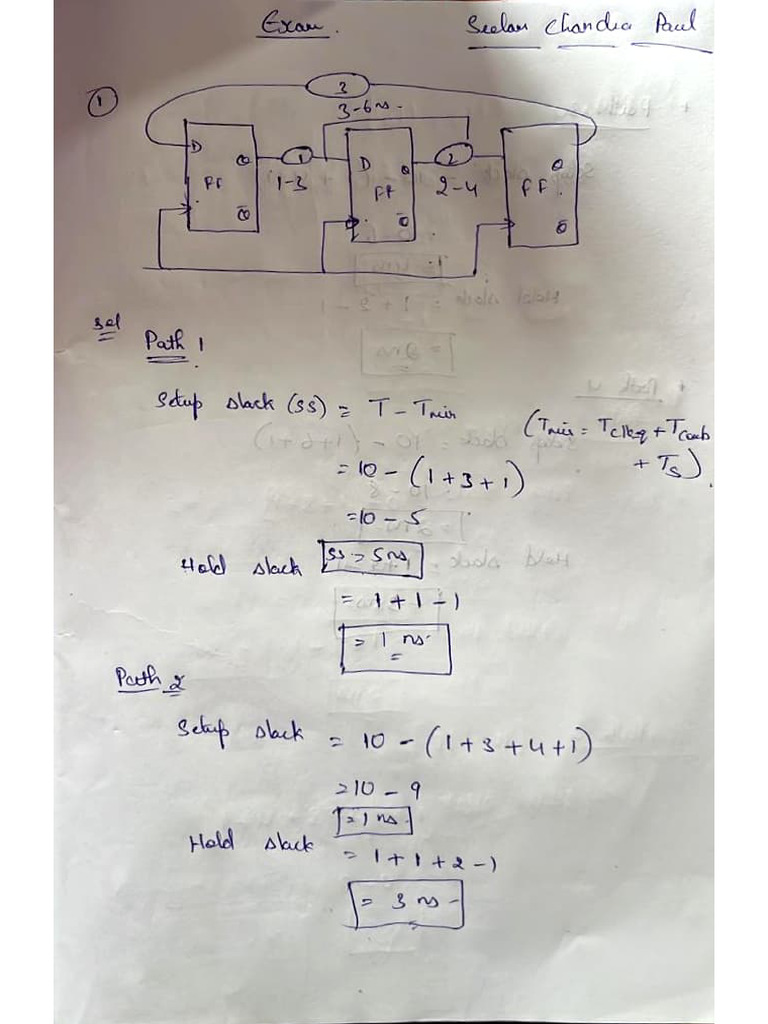 Exam.
Seelam Chandra Paul
1
3
3-6ns.
D Q 1 D Q 2 Q
FF 1-3 FF 2-4 FF
Q̅ Q̅ Q̅
sol
Path 1
Setup slack (SS) = T - Tmin
(Tmin = Tclkq + Tcomb
+ Ts)
= 10 - (1+3+1)
= 10 - 5
SS = 5ns
Hold slack
= 1+1-1
= 1 ns.
Path 2
Setup slack = 10 - (1+3+4+1)
= 10 - 9
= 1 ns.
Hold slack
= 1+1+2-1
= 3 ns